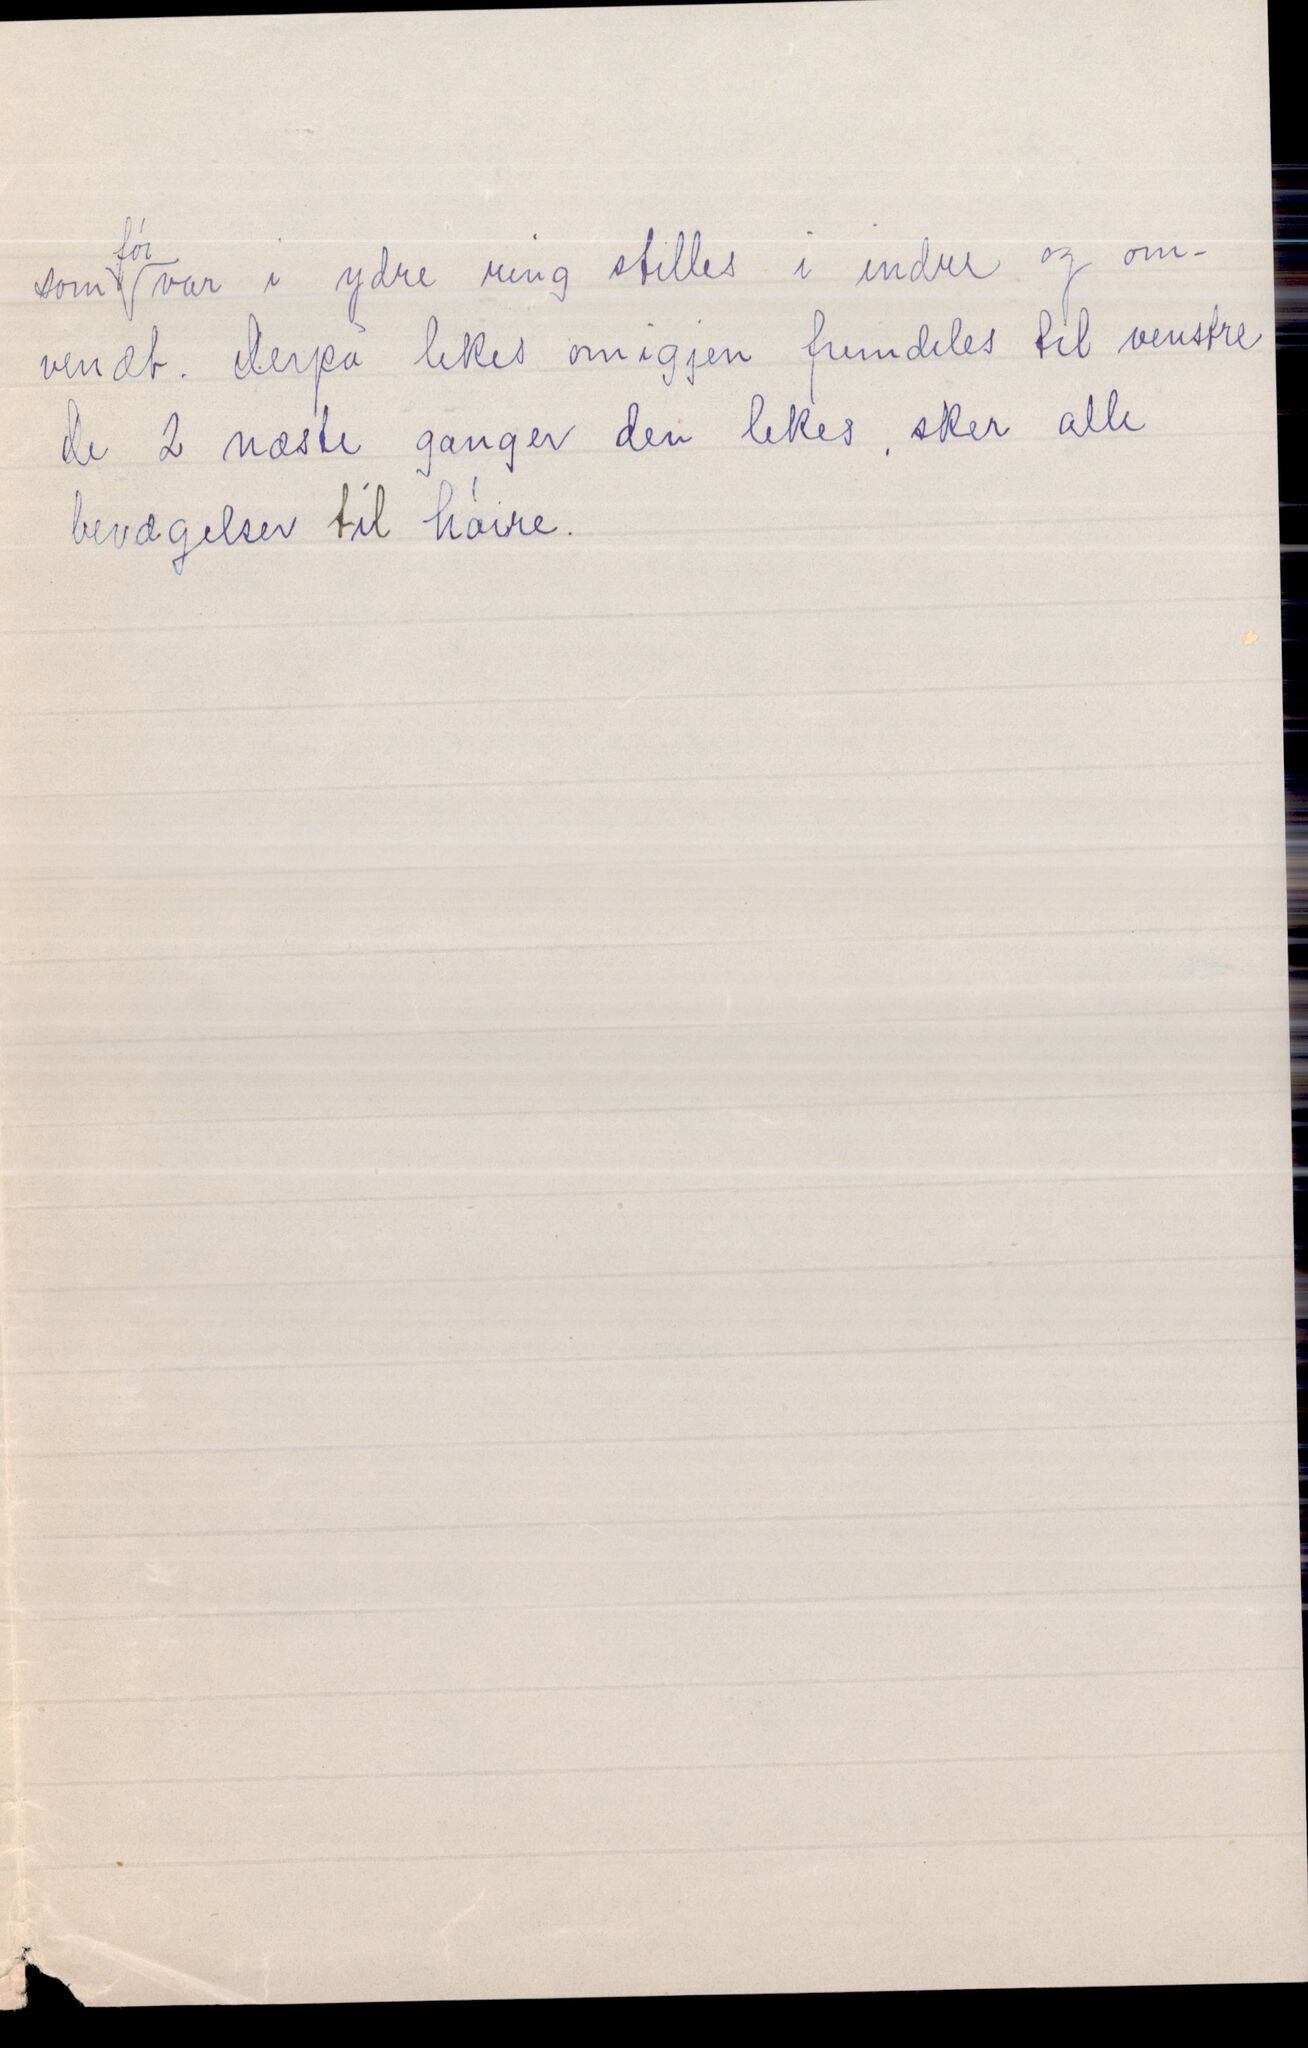 som før var i ydre ring stilles i indre og om-
vendt. Derpå lekes omigjen fremdeles til venstre
De 2 næste ganger den lekes, sker alle
bevægelser til høire.